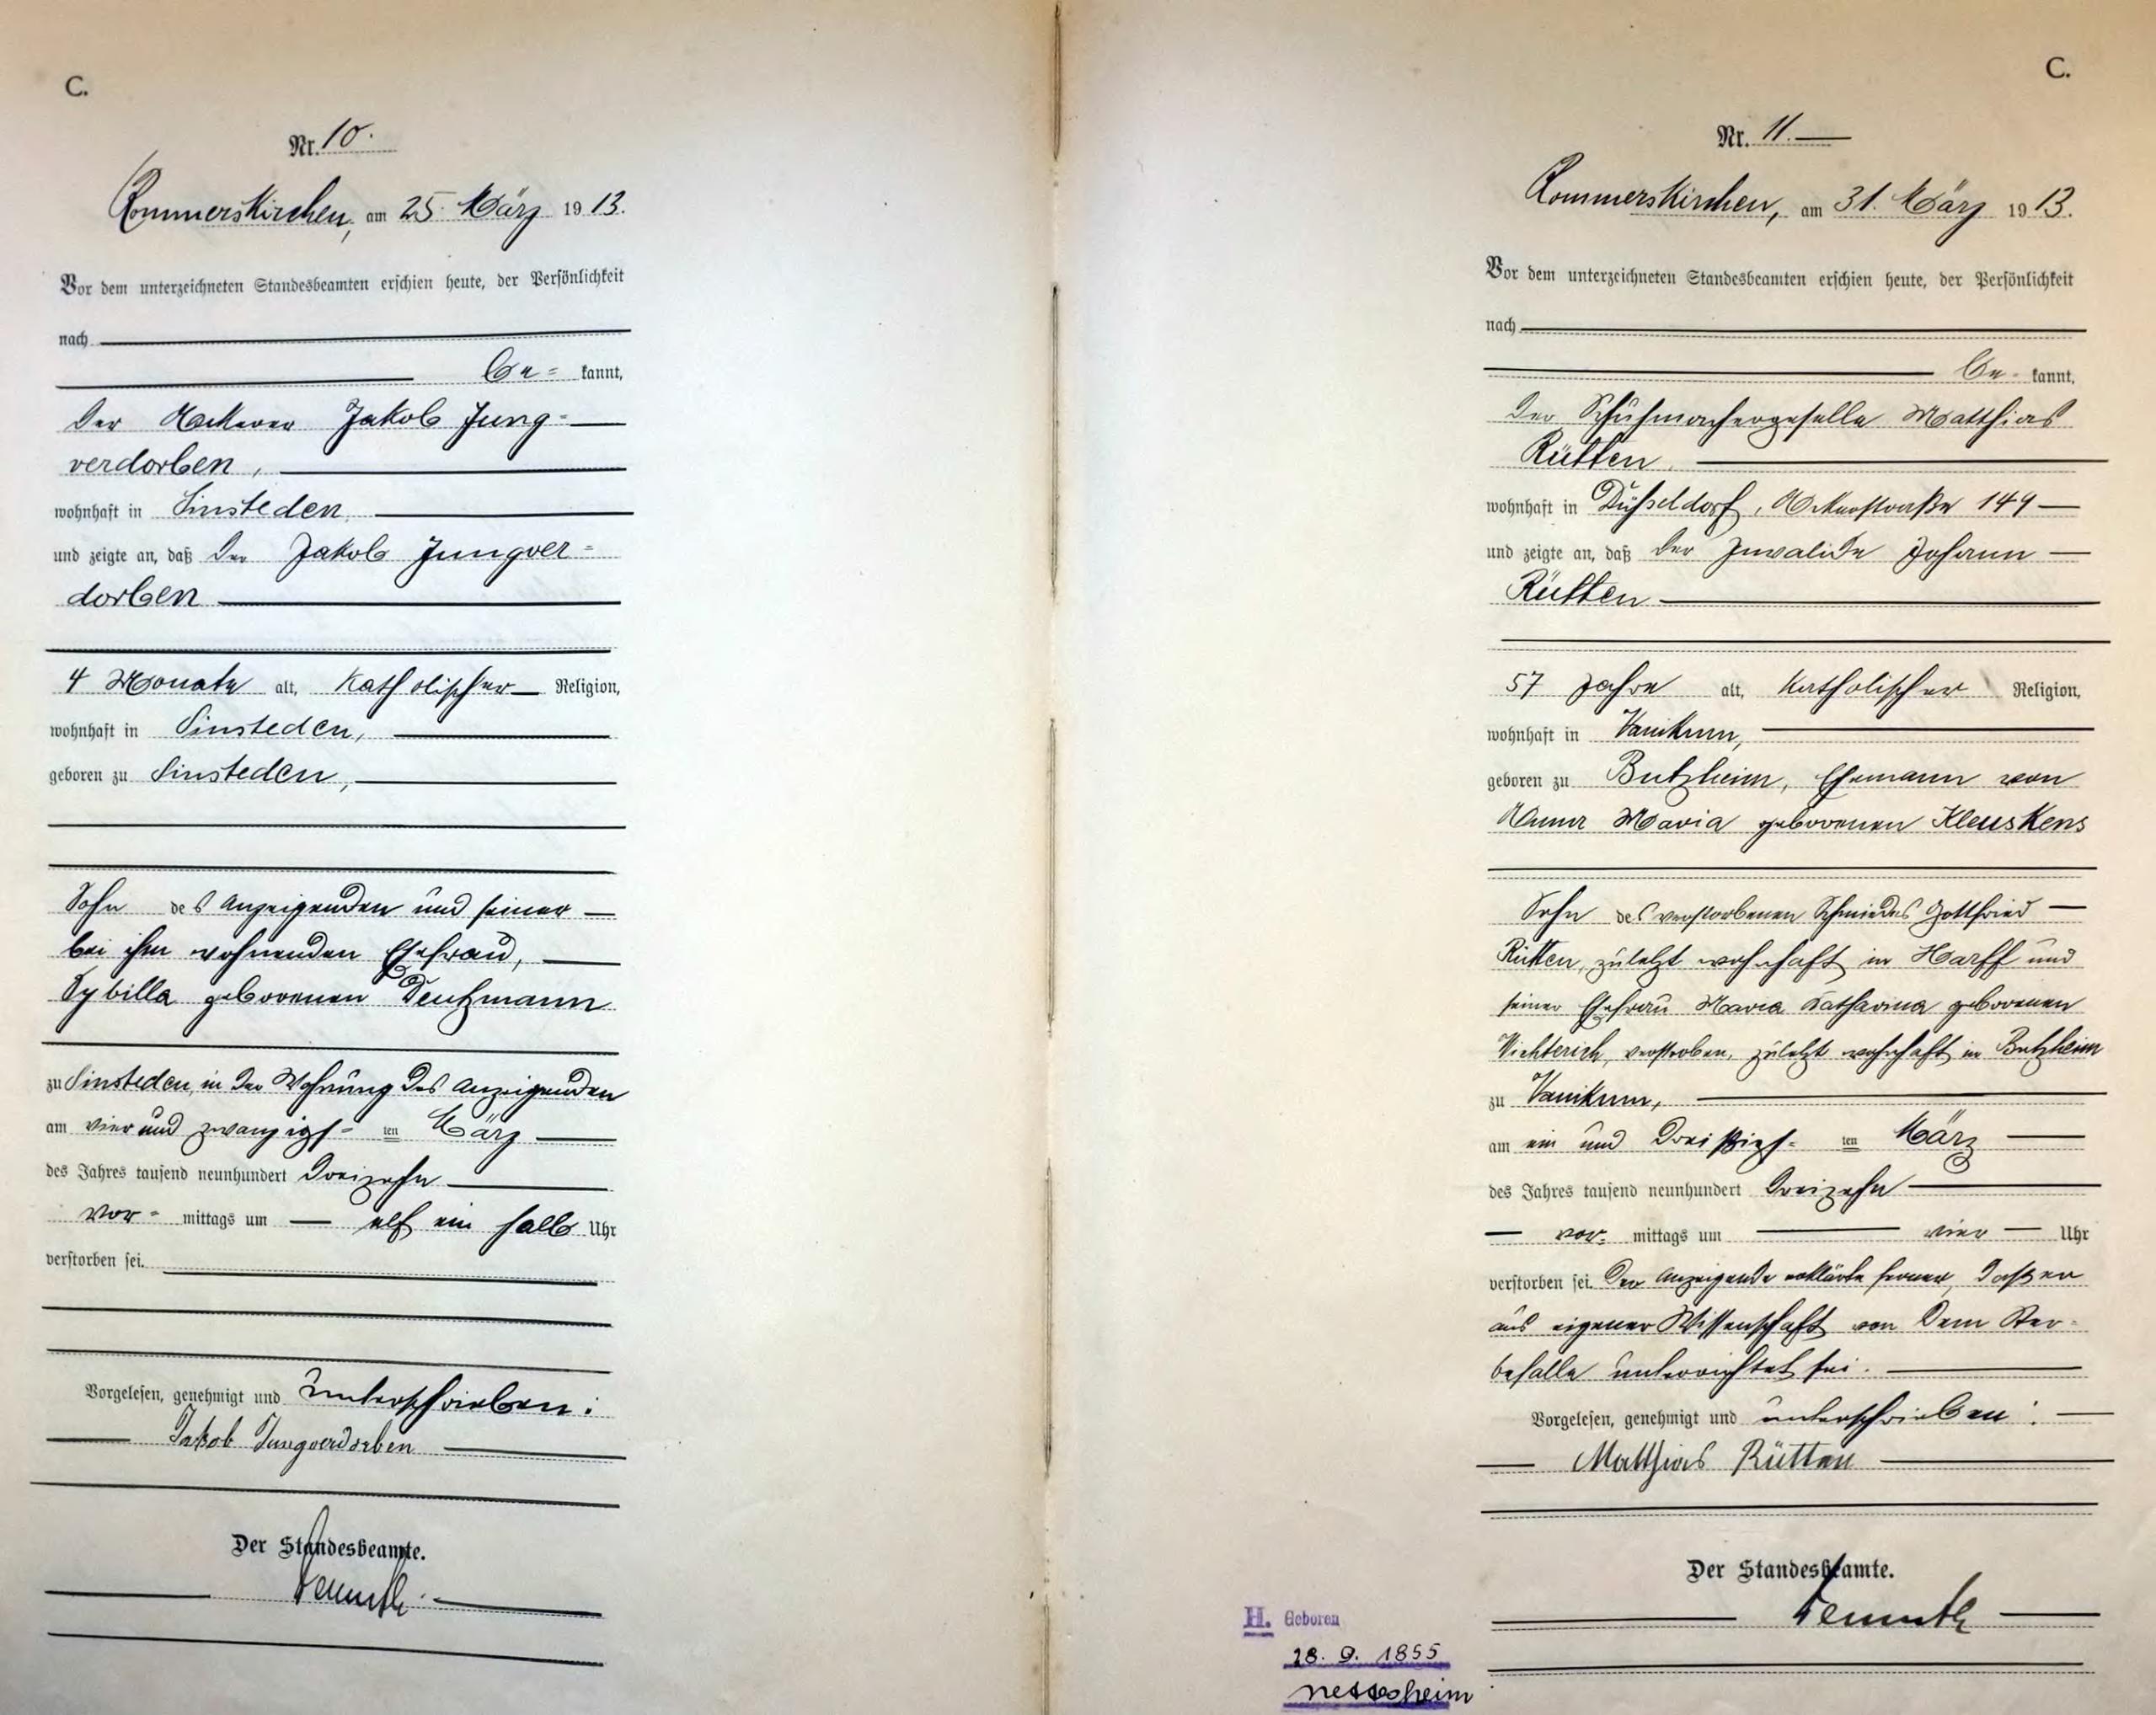 C.
Nr. 10.
Rommerskirchen, am 25. März 1913.
Vor dem unterzeichneten Standesbeamten erschien heute, der Persönlichkeit
nach
be= kannt,
der Ackerer Jakob Jung=
verdorben,
wohnhaft in Sinsteden,
und zeigte an, daß der Jakob Jungver=
dorben
4 Monate alt, katholischer Religion,
wohnhaft in Sinsteden,
geboren zu Sinsteden,
Sohn des Anzeigenden und seiner
bei ihm wohnenden Ehefrau,
Sybilla geborenen Deutzmann
zu Sinsteden, in der Wohnung des Anzeigenden
am vier und zwanzigs= ten März
des Jahres tausend neunhundert dreizehn
vor= mittags um elf ein halb Uhr
verstorben sei.
Vorgelesen, genehmigt und unterschrieben:
Jakob Jungverdorben
Der Standesbeamte.
C.
Nr. 11.
Rommerskirchen, am 31. März 1913.
Vor dem unterzeichneten Standesbeamten erschien heute, der Persönlichkeit
nach
be= kannt,
der Schuhmachergeselle Matthias
Rütten
wohnhaft in Düsseldorf, Ackerstraße 149
und zeigte an, daß der Invalide Johann
Rütten
57 Jahre alt, katholischer Religion,
wohnhaft in Vanikum,
geboren zu Butzheim, Ehemann von
Anna Maria geborenen Kleuskens
Sohn des verstorbenen Schmiedes Gottfried
Rütten, zuletzt wohnhaft in Harff und
seiner Ehefrau Maria Katharina geborenen
Vichterich, verstorben, zuletzt wohnhaft in Butzheim
zu Vanikum,
am ein und dreißigs= ten März
des Jahres tausend neunhundert dreizehn
vor= mittags um vier Uhr
verstorben sei. Der Anzeigende erklärte ferner, daß er
aus eigener Wissenschaft von dem Ster=
befalle unterrichtet sei.
Vorgelesen, genehmigt und unterschrieben:
Matthias Rütten
Der Standesbeamte.
H. Geboren
28. 9. 1855